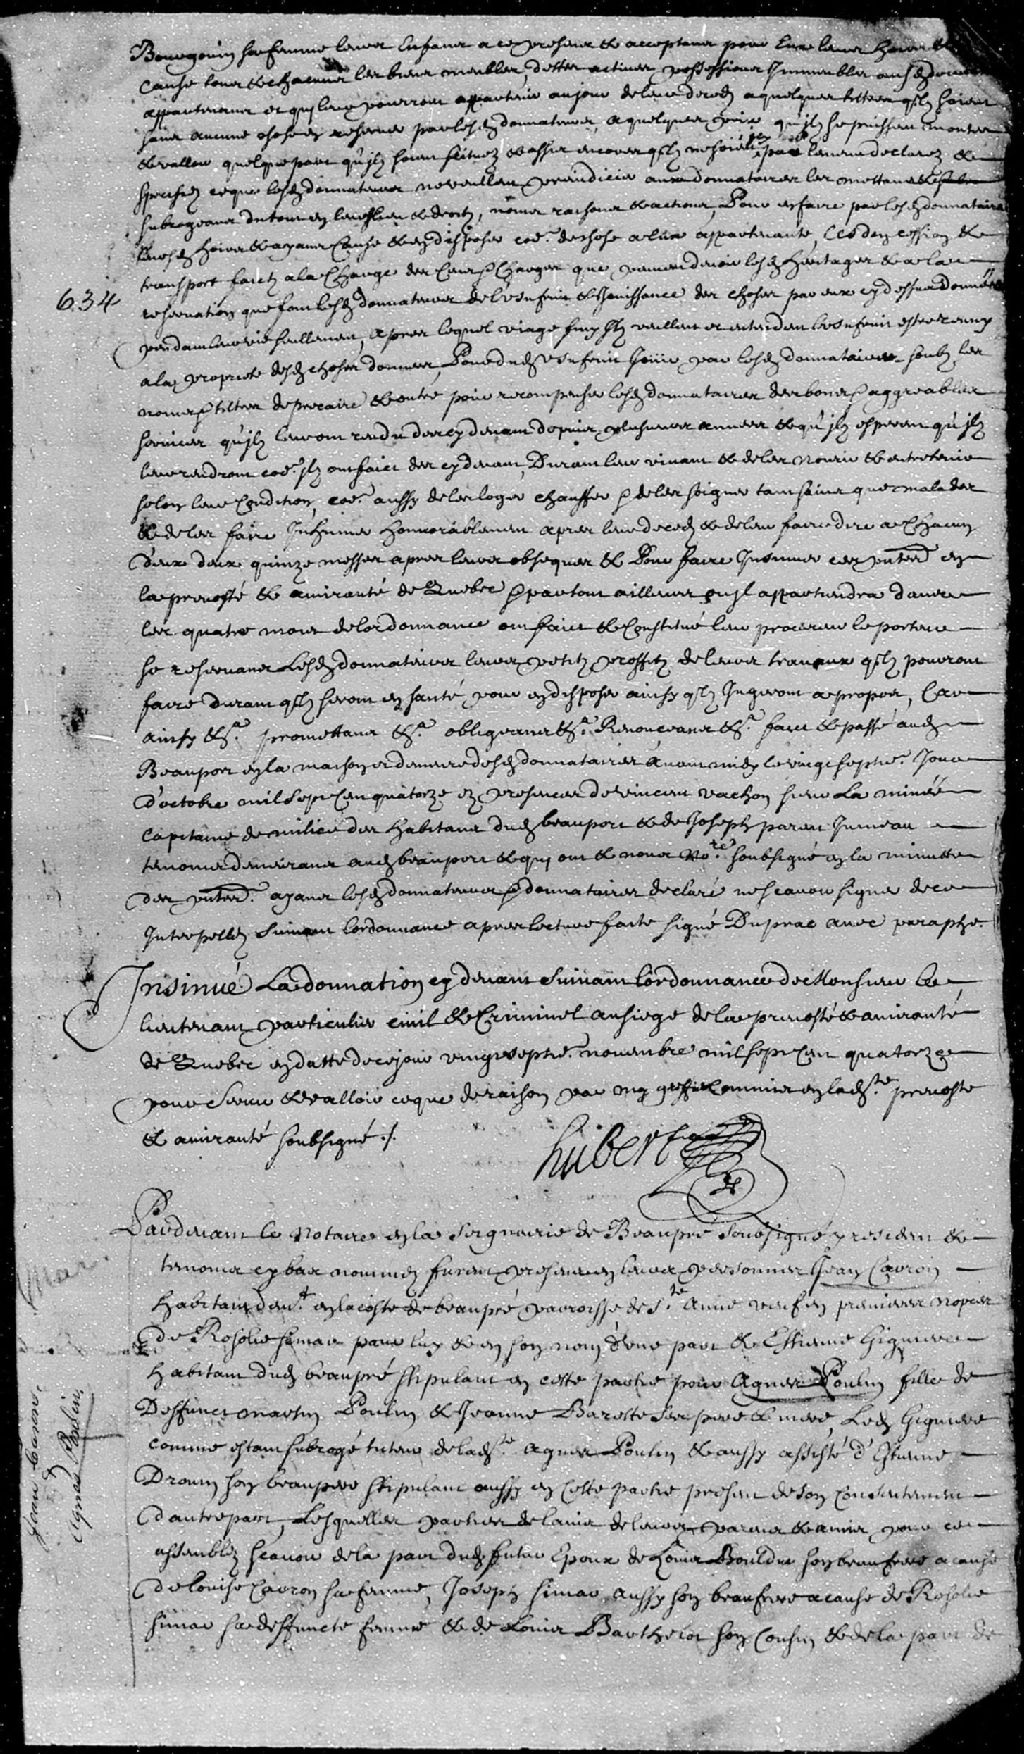 Bourgouin sa femme leurs Enfans a ce presens & acceptans pour Eux leurs hoirs &
cause tous & chacuns les biens meubles, dettes actives possessions Immeubles
appartenans et quy leur pourront appartenir au jour de leur deceds a quelques tiltres qu'ilz soient
sans aucune chose en reserver par lesd donnateurs, a quelque prix qu'ilz se puissent monter
& valloir quelque part qu'ilz soient scituez & assis encores qu'ilz ne soient pas declarez &
specifiez ce que lesd donnateurs ne veullent prejudicier ausd donnataires les mettans &
subrogeans du tout en leurs lieu & droits, noms raisons & actions, Pour en faire par lesd donnataires
leursd hoirs & ayans Cause & en disposer coe. de chose a eux appartenante, Cesd cession &
transport faictz a la Charge des Cens & Charges que peuvent devoir lesd heritages & a la
634
reservation que font lesd donnateurs de l'usufruit & Jouissance des choses par eux cy dessus données
pendant leur vie seullement, apres lequel viage finy ilz veullent et entendent l'usufruit estre reuny
a la proprieté desd choses données, Pour dud usufruit Jouir par lesd donnataires soubz les
noms & tiltres de precaire & outre pour recompenser lesd donnataires des bons & aggreables
services qu'ilz leur ont rendu des cy devant depuis plusieurs années & qu'ilz esperent qu'ilz
leur rendront coe. ilz ont faict des cy devant, Durant leur vivant & de les nourir & entretenir
selon leur Condition, coe. aussy de les loger chauffer & de les soigner tant sains que malades
& de les faire Inhumer honnorablement apres leur deceds & de leur faire dire a Chacun
d'eux deux quinze messes apres leurs obseques & Pour faire Insinuer ces pntes en
la prevosté & amirauté de Quebec & partout ailleurs ou il appartiendra dans
les quatre mois de lordonnance ont faict & Constitué leur procureur le porteur
se reservans Lesd donnateurs leurs petitz proffitz de leurs travaux qu'ilz pourront
faire durant qu'ilz seront en santé pour en disposer ainsy qu'ilz Jugeront a propos, Car
ainsy &a. promettans &a. obligeans &a. Renonçeans &a. faict & passé aud
Beauport en la maison et demeure desd donnataires avant midy le vingt septie. Jour
d'octobre mil Sept Cens quatorze en presences de vincent vachon sieur La minée
Capitaine de milice des habitans dud beauport & de Joseph parent Jumeau
temoins demeurans aud beauport & quy ont & nous No.re soubsigné en la minutte
des pntes. ayans lesd donnateurs & donnataires declaré ne scavoir signer de ce
Interpellez Suivant lordonnance apres lecture faite signé Duprac avec paraphe.
Insinué La donnation cy devant Suivant lordonnance de Monsieur le
lieutenant particulier civil & Criminel au siege de la prevosté & amirauté
de Quebec en datte de ce jour vingt septie. novembre mil sept Cent quatorze
pour Servir & valloir ce que de raison par moy greffier Commis en lad.te prevosté
& amirauté soubsigné ./.
hubert
Pardevant le Notaire en la Seigneurie de Beaupré Soubsigné y resident &
temoins cy bas nommez furent presens en leurs personnes Jean Carron
habitant demt. en la coste de beaupré parroisse de Ste. Anne veuf en premieres nopces
de Rosolie simar pour luy & en son nom d'une part & Estienne Gignere
habitant dud beaupré stipulant en cette partie pour Agnes Poulin fille de
Deffunct martin Poulin & Jeanne Barette ses pere & mere, Led Gignere
comme estant subrogé tuteur de lad.te Agnes Poulin & aussy assisté d'Etienne
Drouin son beaupere stipulant aussy en Cette partie presens de Son Consentement
d'autre part, Lesquelles parties de lavis de leurs parens & amis pour ce
assemblez scavoir de la part dud futur Epoux de Louis Bouldu son beaufrere a cause
de Louise Carron sa femme, Joseph simar aussy son beaufrere a cause de Rosolie
simar sa deffuncte femme & de Louis Barthelot son Cousin & de la part de
Mar.
Jean Carron
&
Agnes Poulin